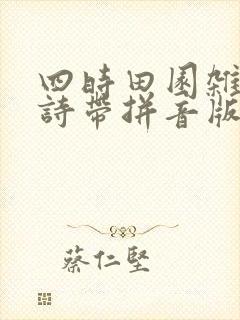 四時田園雜
詩帶拼音版
蔡仁堅